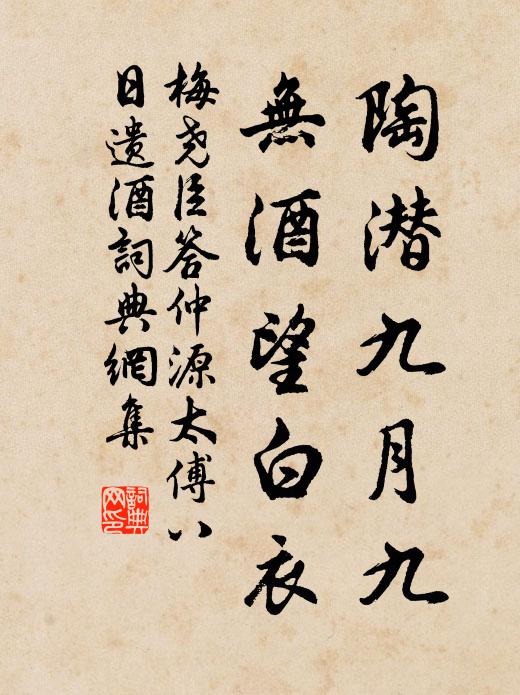 陶潜九月九
無酒望白衣
梅尧臣答仲源太傅八
日遗酒詞典網集
詞典
网印